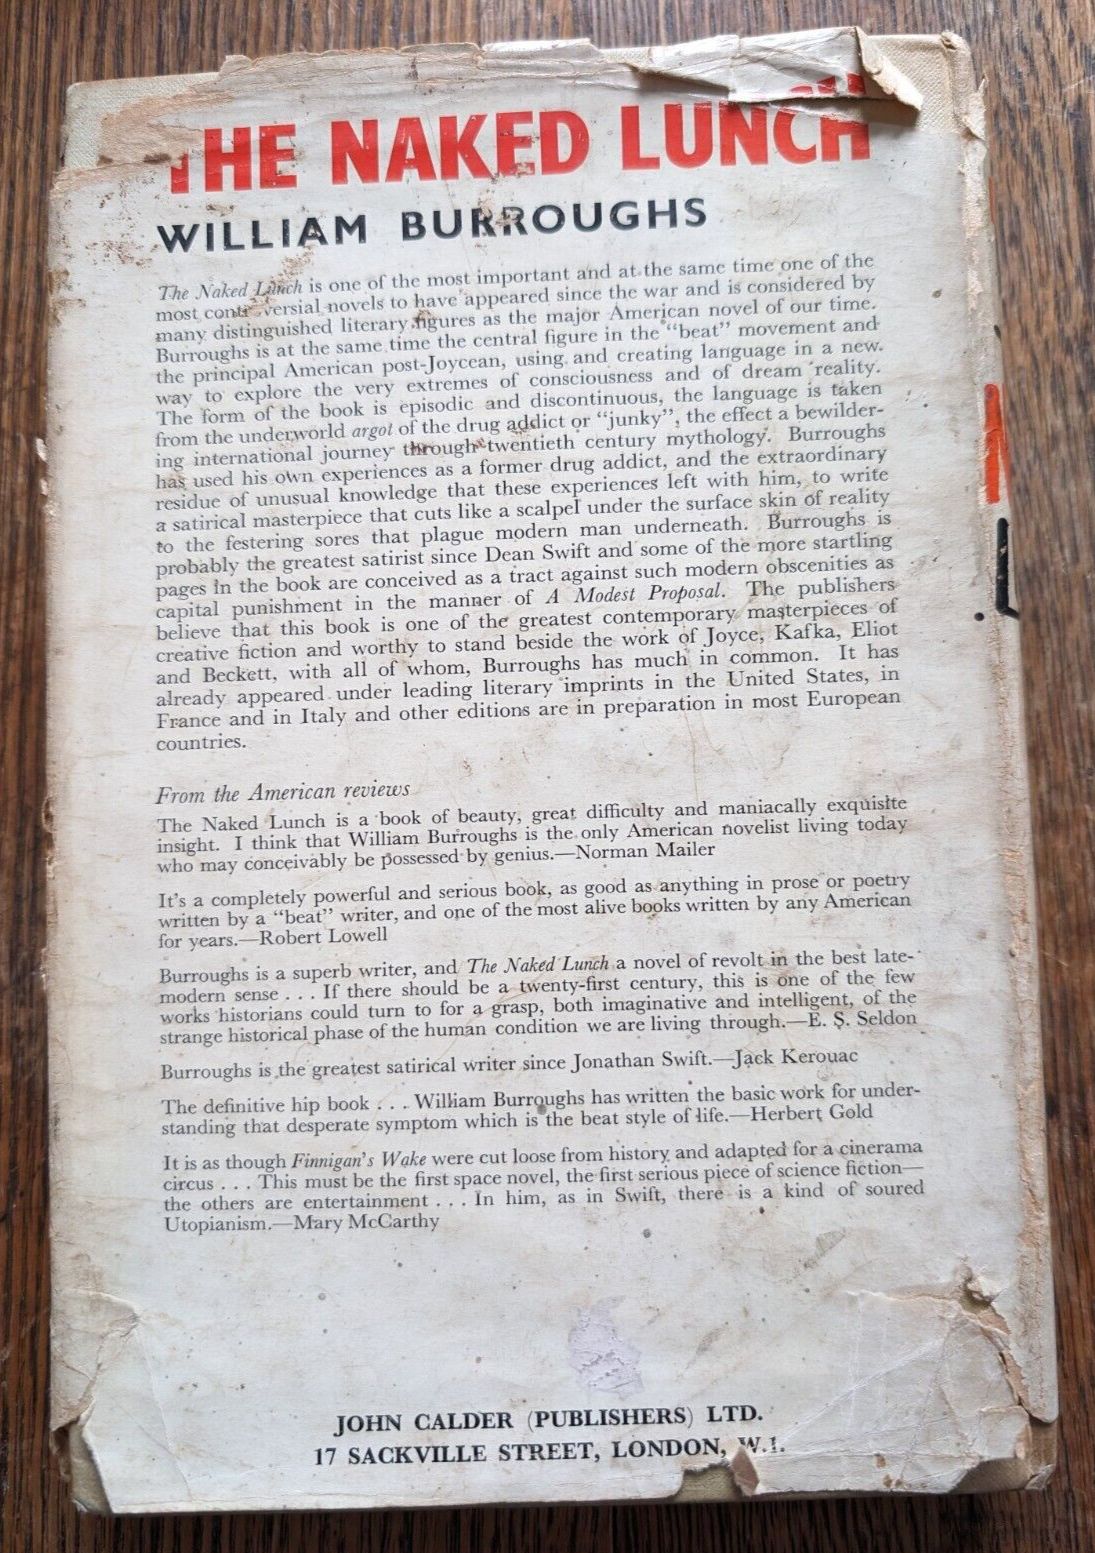 THE NAKED LUNCH
WILLIAM BURROUGHS
The Naked Lunch is one of the most important and at the same time one of the
most controversial novels to have appeared since the war and is considered by
many distinguished literary figures as the major American novel of our time.
Burroughs is at the same time the central figure in the "beat" movement and
the principal American post-Joycean, using and creating language in a new
way to explore the very extremes of consciousness and of dream reality.
The form of the book is episodic and discontinuous, the language is taken
from the underworld argot of the drug addict or "junky", the effect a bewilder-
ing international journey through twentieth century mythology. Burroughs
has used his own experiences as a former drug addict, and the extraordinary
residue of unusual knowledge that these experiences left with him, to write
a satirical masterpiece that cuts like a scalpel under the surface skin of reality
to the festering sores that plague modern man underneath. Burroughs is
probably the greatest satirist since Dean Swift and some of the more startling
pages in the book are conceived as a tract against such modern obscenities as
capital punishment in the manner of A Modest Proposal. The publishers
believe that this book is one of the greatest contemporary masterpieces of
creative fiction and worthy to stand beside the work of Joyce, Kafka, Eliot
and Beckett, with all of whom, Burroughs has much in common. It has
already appeared under leading literary imprints in the United States, in
France and in Italy and other editions are in preparation in most European
countries.
From the American reviews
The Naked Lunch is a book of beauty, great difficulty and maniacally exquisite
insight. I think that William Burroughs is the only American novelist living today
who may conceivably be possessed by genius.—Norman Mailer
It's a completely powerful and serious book, as good as anything in prose or poetry
written by a "beat" writer, and one of the most alive books written by any American
for years.—Robert Lowell
Burroughs is a superb writer, and The Naked Lunch a novel of revolt in the best late-
modern sense . . . If there should be a twenty-first century, this is one of the few
works historians could turn to for a grasp, both imaginative and intelligent, of the
strange historical phase of the human condition we are living through.—E. S. Seldon
Burroughs is the greatest satirical writer since Jonathan Swift.—Jack Kerouac
The definitive hip book . . . William Burroughs has written the basic work for under-
standing that desperate symptom which is the beat style of life.—Herbert Gold
It is as though Finnigan's Wake were cut loose from history and adapted for a cinerama
circus . . . This must be the first space novel, the first serious piece of science fiction—
the others are entertainment . . . In him, as in Swift, there is a kind of soured
Utopianism.—Mary McCarthy
JOHN CALDER (PUBLISHERS) LTD.
17 SACKVILLE STREET, LONDON, W.1.